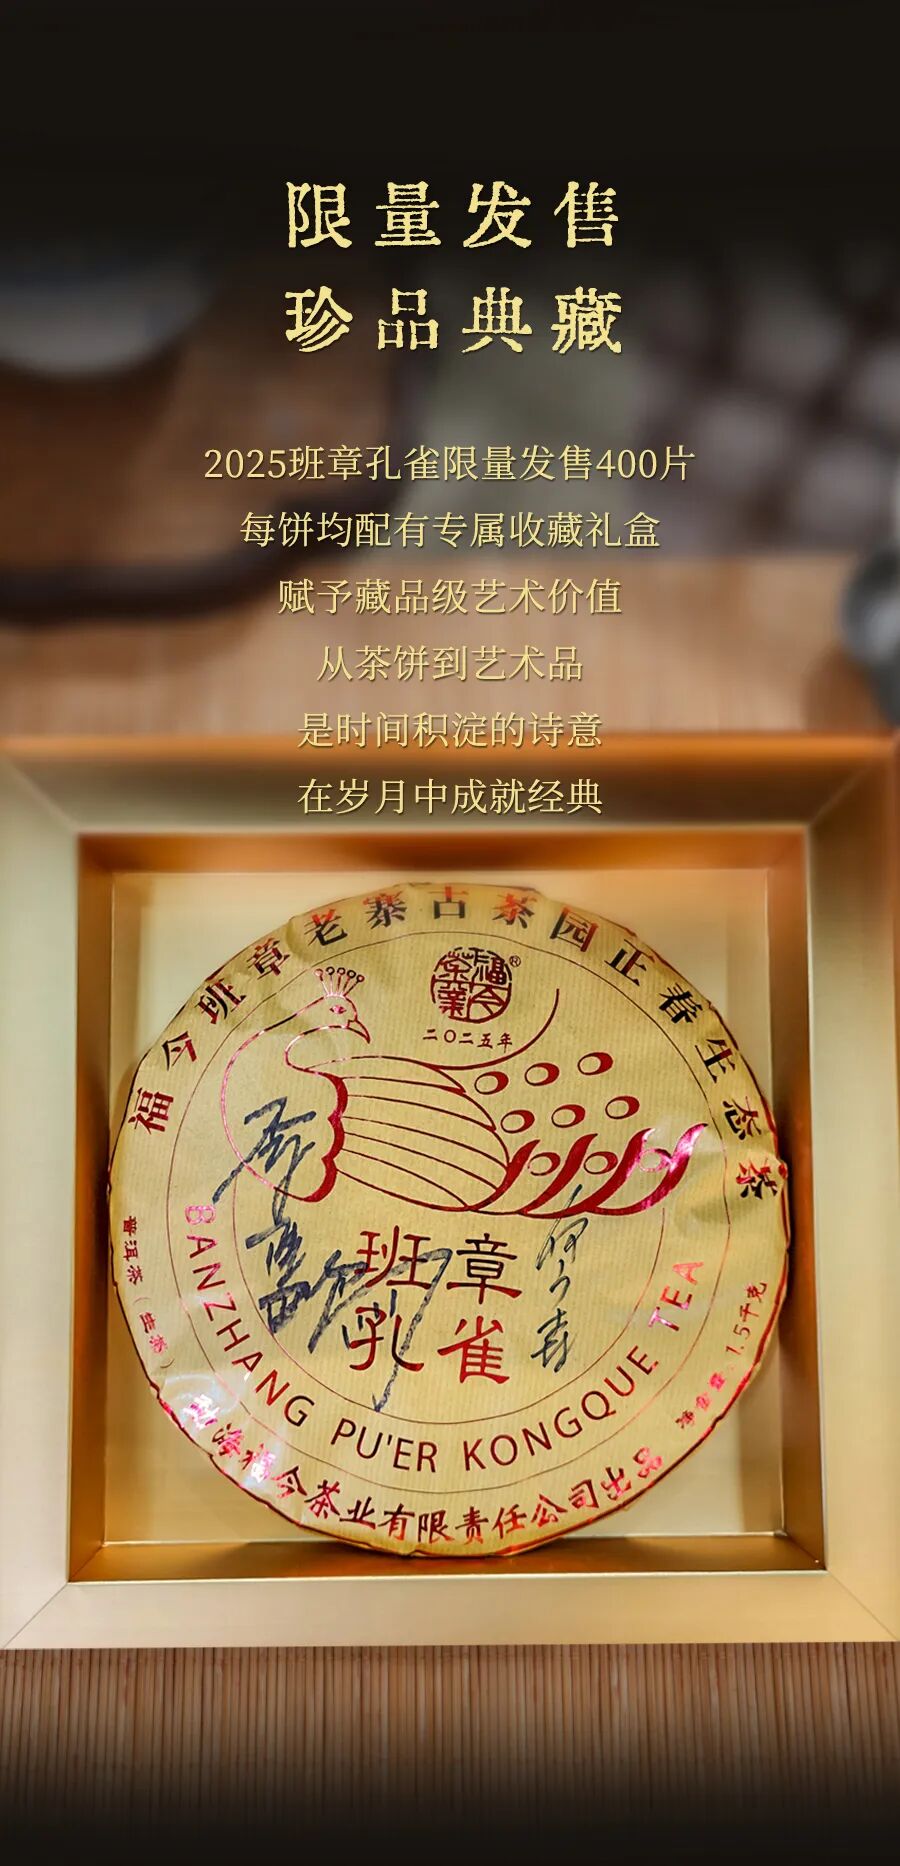 限量发售
珍品典藏
2025班章孔雀限量发售400片
每饼均配有专属收藏礼盒
赋予藏品级艺术价值
从茶饼到艺术品
是时间积淀的诗意
在岁月中成就经典
福今班章老寨古茶园正春生态茶
福今茶业®
二〇二五年
班章
孔雀
BANZHANG PU'ER KONGQUE TEA
普洱茶（生茶）
净含量：1.5千克
勐海福今茶业有限责任公司出品